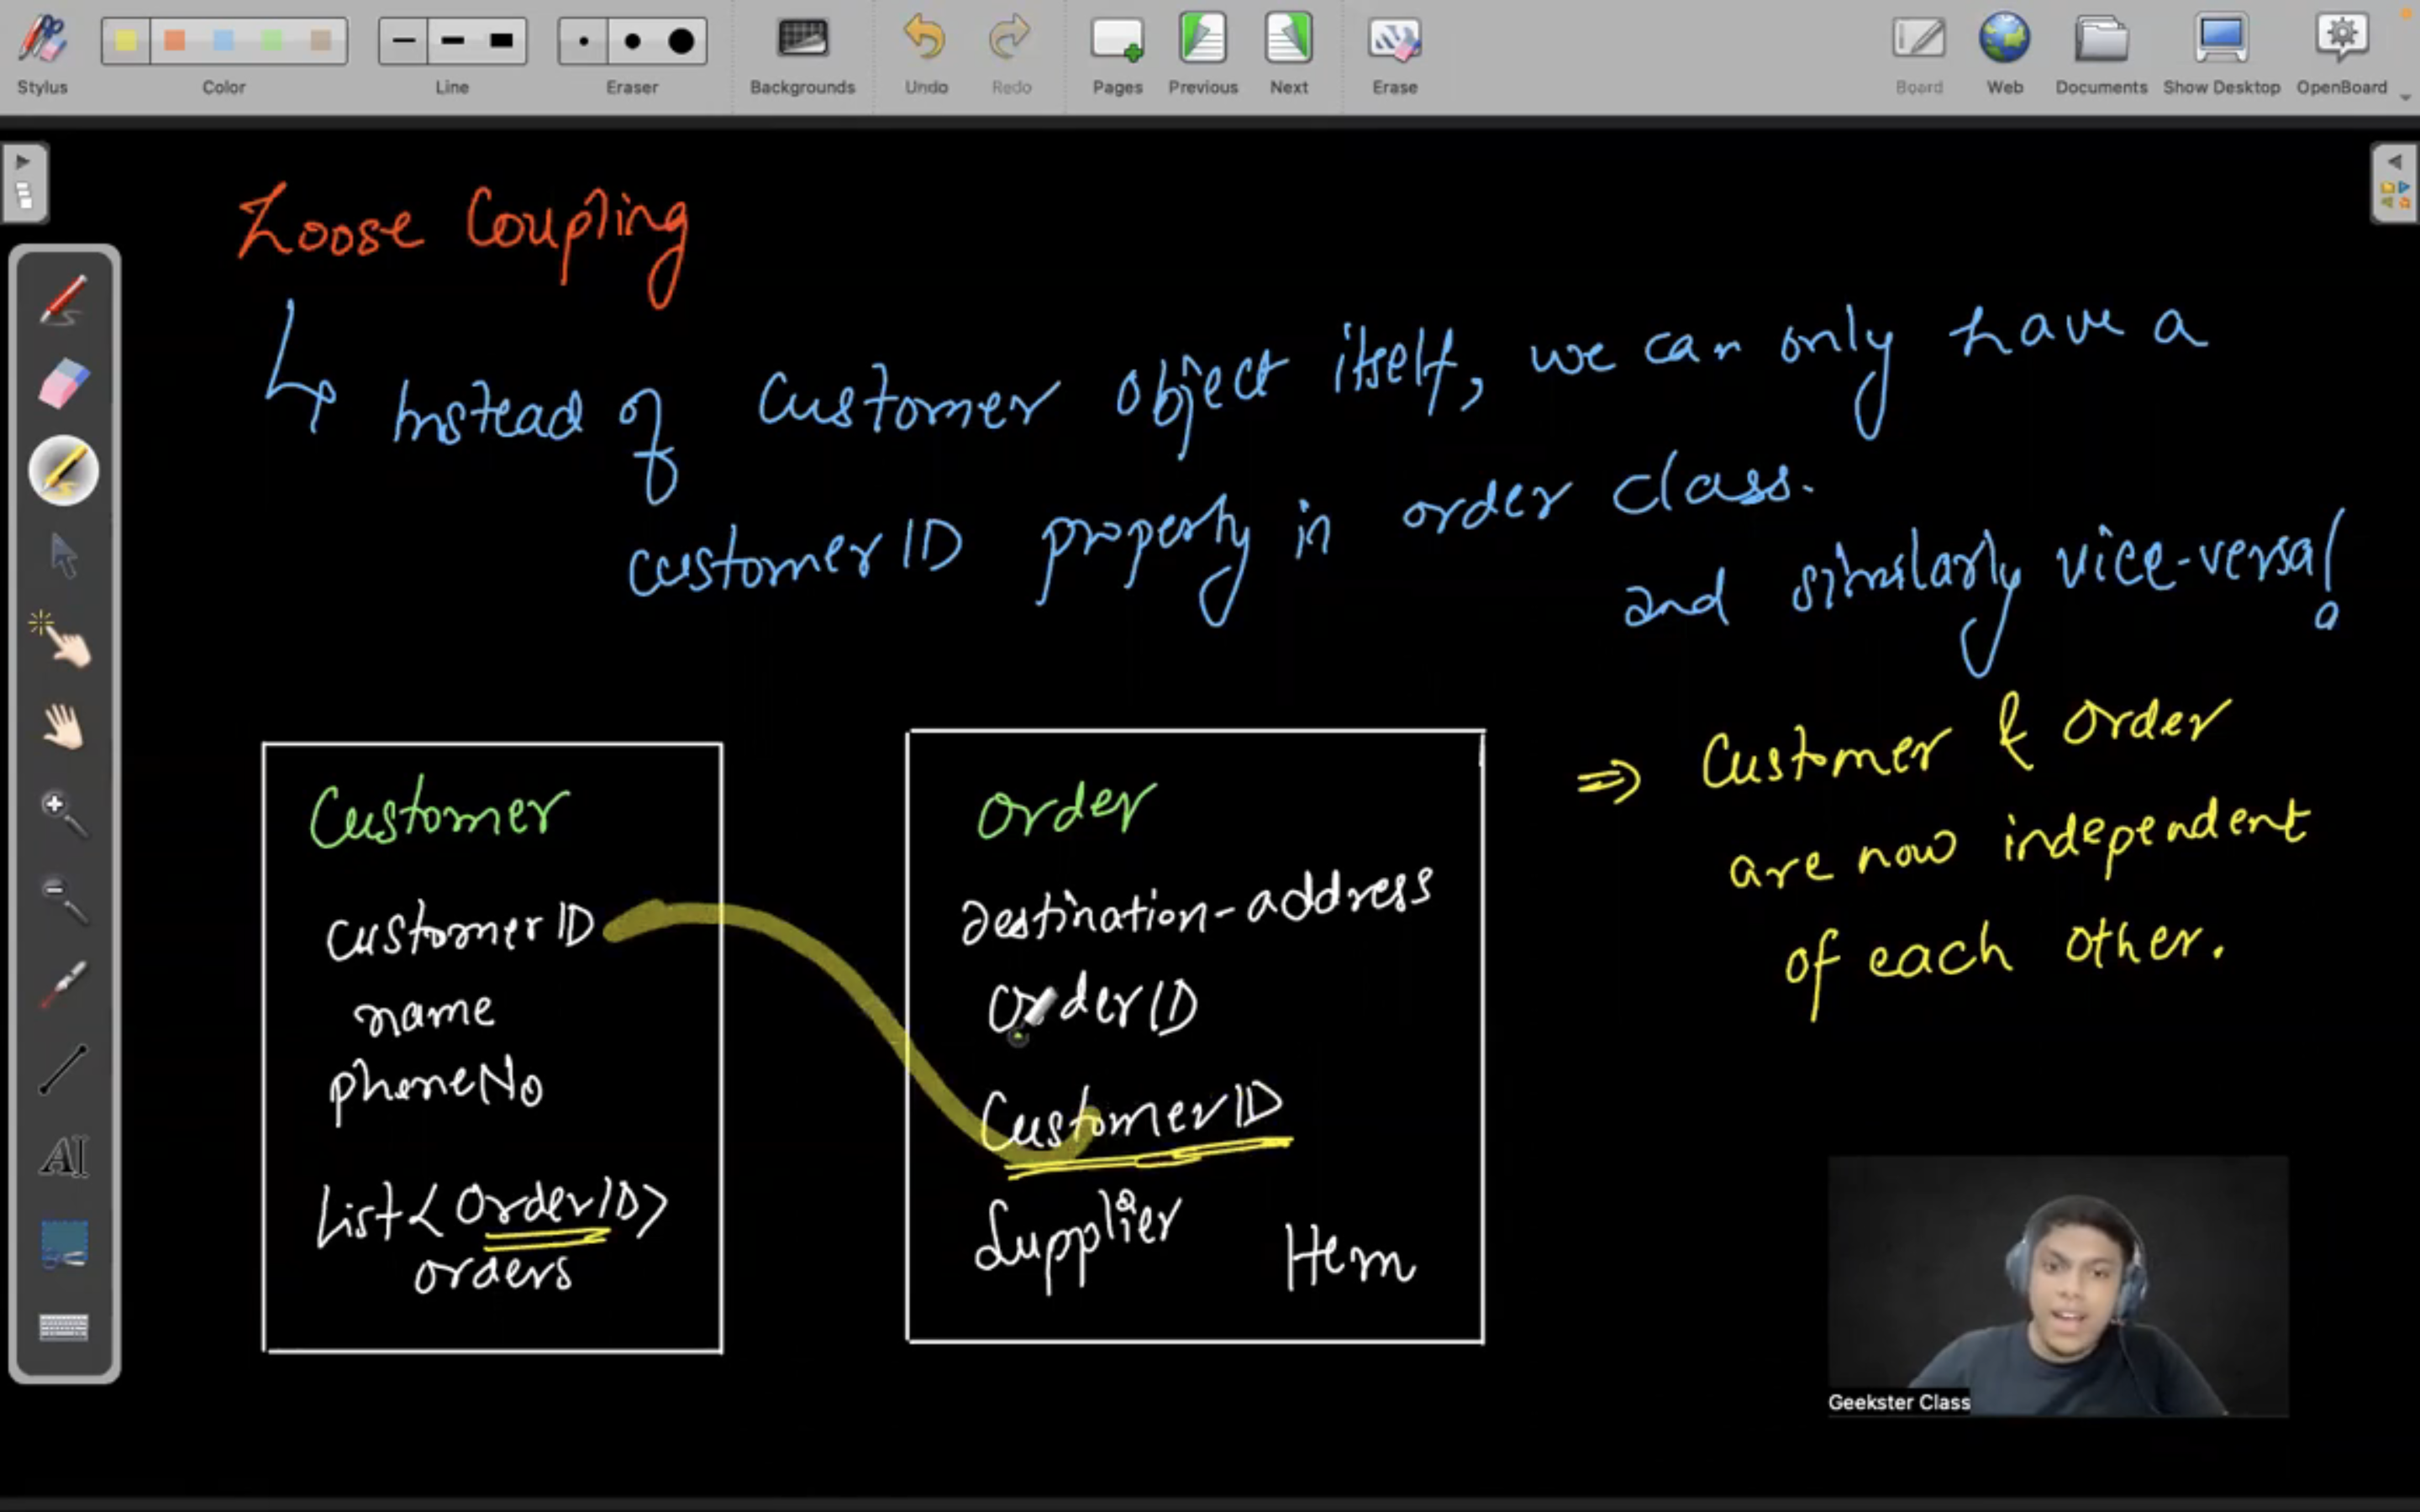 Stylus
Color
Line
Eraser
Backgrounds
Undo
Redo
Pages
Previous
Next
Erase
Board
Web
Documents
Show Desktop
OpenBoard
Loose Coupling
Instead of Customer object itself, we can only have a
customerID property in order class.
and similarly vice-versa!
Customer
customerID
name
phoneNo
List<OrderID>
orders
Order
Destination-address
OrderID
CustomerID
Supplier Item
⇒ Customer & Order
are now independent
of each other.
AI
Geekster Class